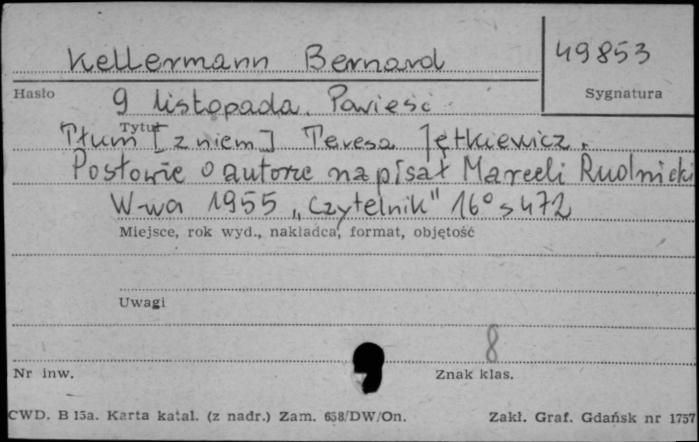 Kellermann Bernard
49853
Hasło
Sygnatura
9 listopada. Powieść
Tytuł
Tłum [z niem] Teresa Jętkiewicz.
Posłowie o autorze napisał Marceli Rudnicki
W-wa 1955 „Czytelnik" 16° s 472
Miejsce, rok wyd., nakładca, format, objętość
Uwagi
8
Nr inw.
Znak klas.
CWD. B 15a. Karta katal. (z nadr.) Zam. 658/DW/On.
Zakł. Graf. Gdańsk nr 1757